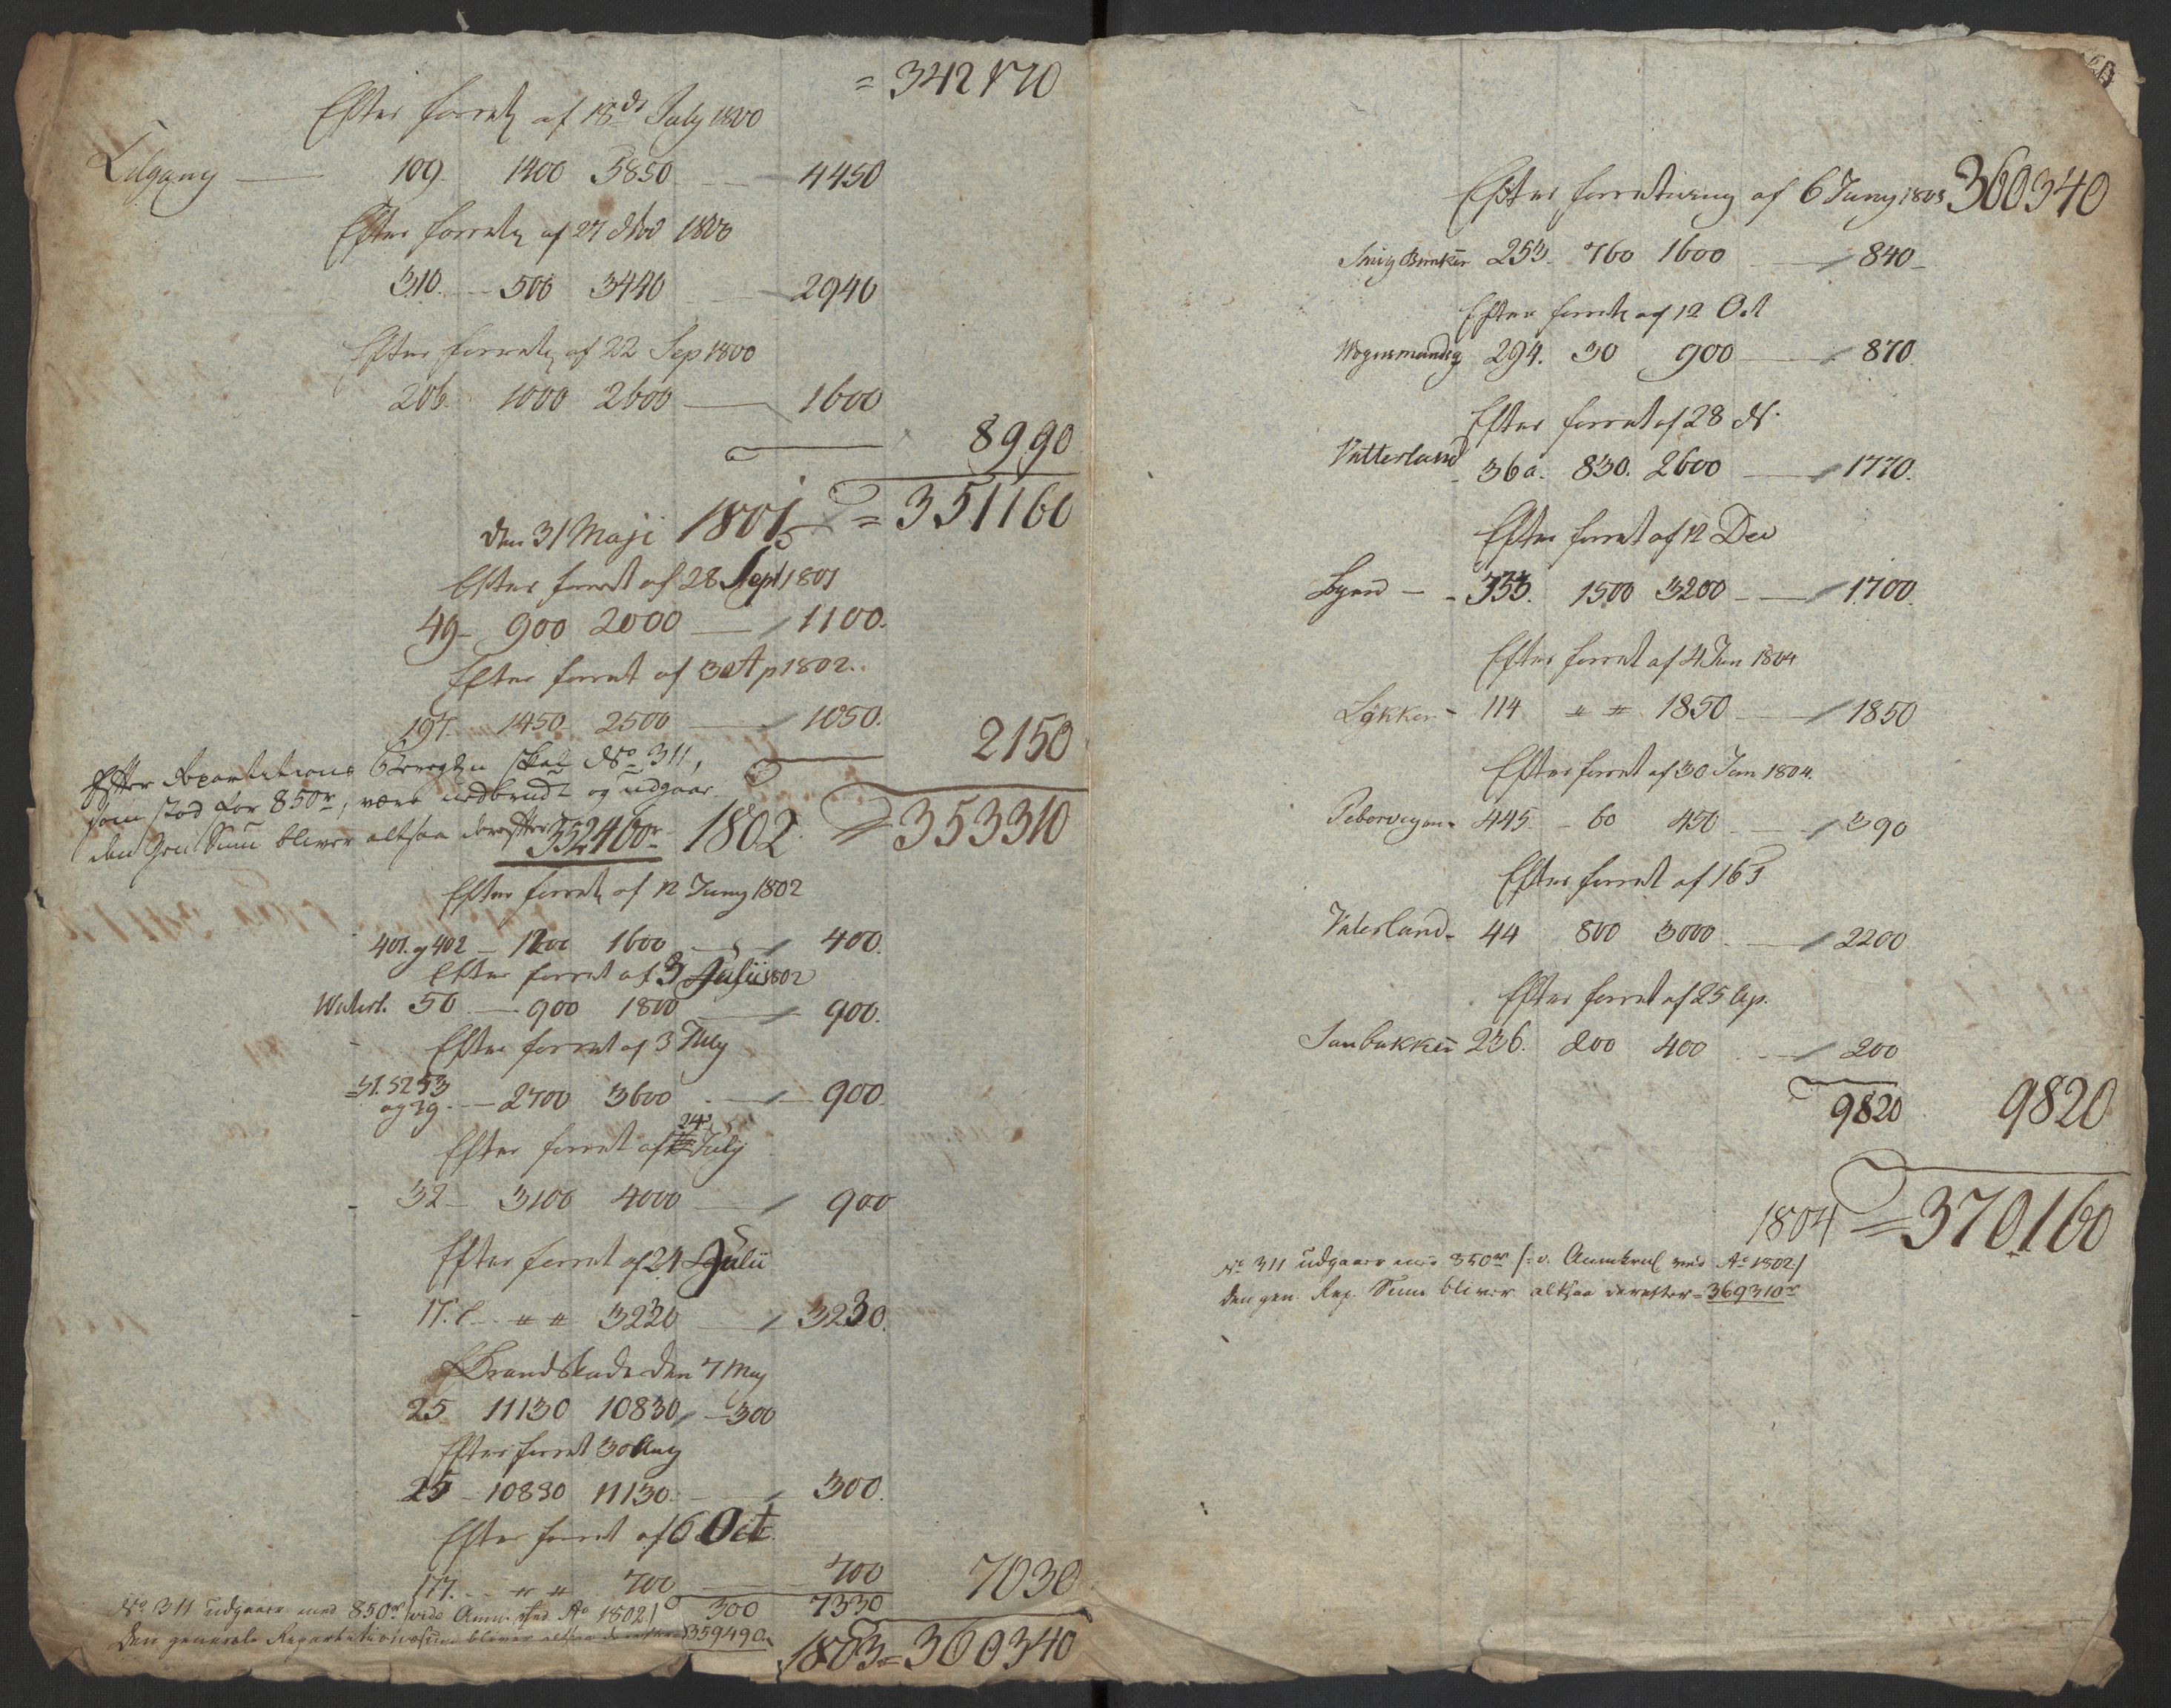 = 342170
Efter forretn af 18de July 1800
Tilgang — 109 1400 5850 — 4450
Efter forretn af 27 dito 1800
310. — 500 3440 — 2940
Efter forretn af 22 Sep 1800
206. 1000 2600 — 1600
8990
den 31 Maji 1801 = 351160
Efter forret af 28 Sept 1801
49 - 900 2000 — 1100.
Efter forret af 30 Ap 1802.
197. 1450 2500 — 1050.
2150
Efter Repartitions skal No 311,
som stod for 850r, være nedbrudt og udgaar
den Gen Sum bliver altsaa derefter 352460r - 1802. = 353310
Efter forretn af 12 Juny 1802
401. og 402 — 1200 1600 — 400.
Efter forret af 3 Julii 1802
Waterl. 50 — 900 1800 — 900.
Efter forret af 3 July
51. 52 53
og 19. — 2700 3600 — 900.
24
Efter forret af July
32 — 3100 4000 — 900
Efter forret af 24 Julii
17. l — " " 3220 — 3230.
Brandskade den 7 May
25 11130 10830 — 300
Efter forret 30 Aug
25 - 10830 11130. — 300.
Efter forret af 6 Oct.
177. — " " 700 — 700
7030
No 311 udgaaer med 850r (vide Anm. ved Ao 1802.) 300 7330
Den generale Repartitionssum bliver altsaa derefter 359490.
1803 = 360340
Efter forretning af 6 Juny 1803 360340
253 760 1600 — 840 -
Efter forretn af 12 Oct
Wognmandsg 294. 30 900 — 870.
Efter forret af 28 ds.
Vatterland 36 a. 830. 2600 — 1770.
Efter forret af 12 Dec
Byen — 353. 1500 3200 — 1700.
Efter forret af 4 Jan 1804
Løkken - 114 " " 1850 — 1850
Efter forret af 30 Jan 1804.
Pebervigen. 445. - 60 450 — 390
Efter forret af 16
Vaterland - 44 800 3000 — 2200
Efter forret af 25 Ap.
236. 200 400 — 200
9820 9820
1804 = 370160
No 311 udgaaer med 850r (: v. Anmærk ved Ao 1802.)
den gen. Rep. Sum bliver altsaa derefter = 369310r